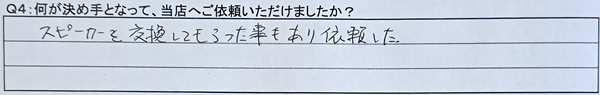 Q4:何が決め手となって、当店へご依頼いただけましたか？
スピーカーを交換してもらった事もあり依頼した.